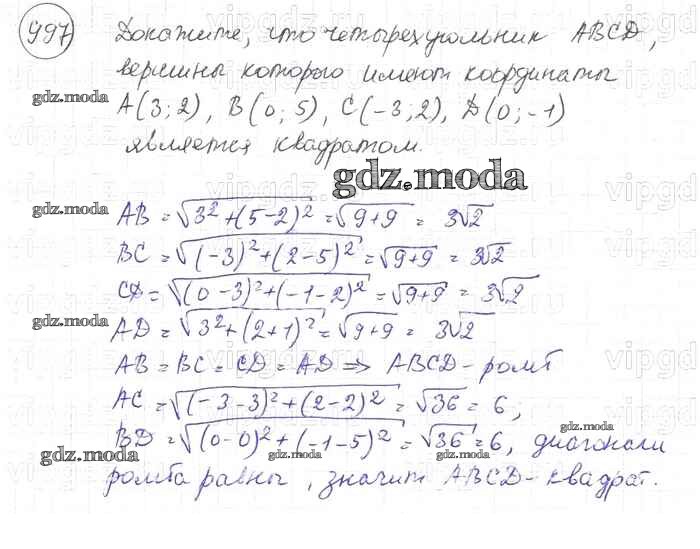 997
Докажите, что четырехугольник ABCD,
вершины которого имеют координаты
gdz.moda
A(3;2), B(0;5), C(-3;2), D(0;-1)
является квадратом.
gdz.moda
gdz.moda
AB=√3²+(5-2)²=√9+9 = 3√2
BC=√(-3)²+(2-5)²=√9+9 = 3√2
CD=√(0-3)²+(-1-2)²=√9+9 = 3√2
gdz.moda
AD=√3²+(2+1)²=√9+9 = 3√2
AB=BC=CD=AD ⇒ ABCD-ромб
gdz.moda
AC=√(-3-3)²+(2-2)²=√36=6;
BD=√(0-0)²+(-1-5)²=√36=6, диагонали
gdz.moda gdz.moda gdz.moda
ромба равны, значит ABCD-квадрат.